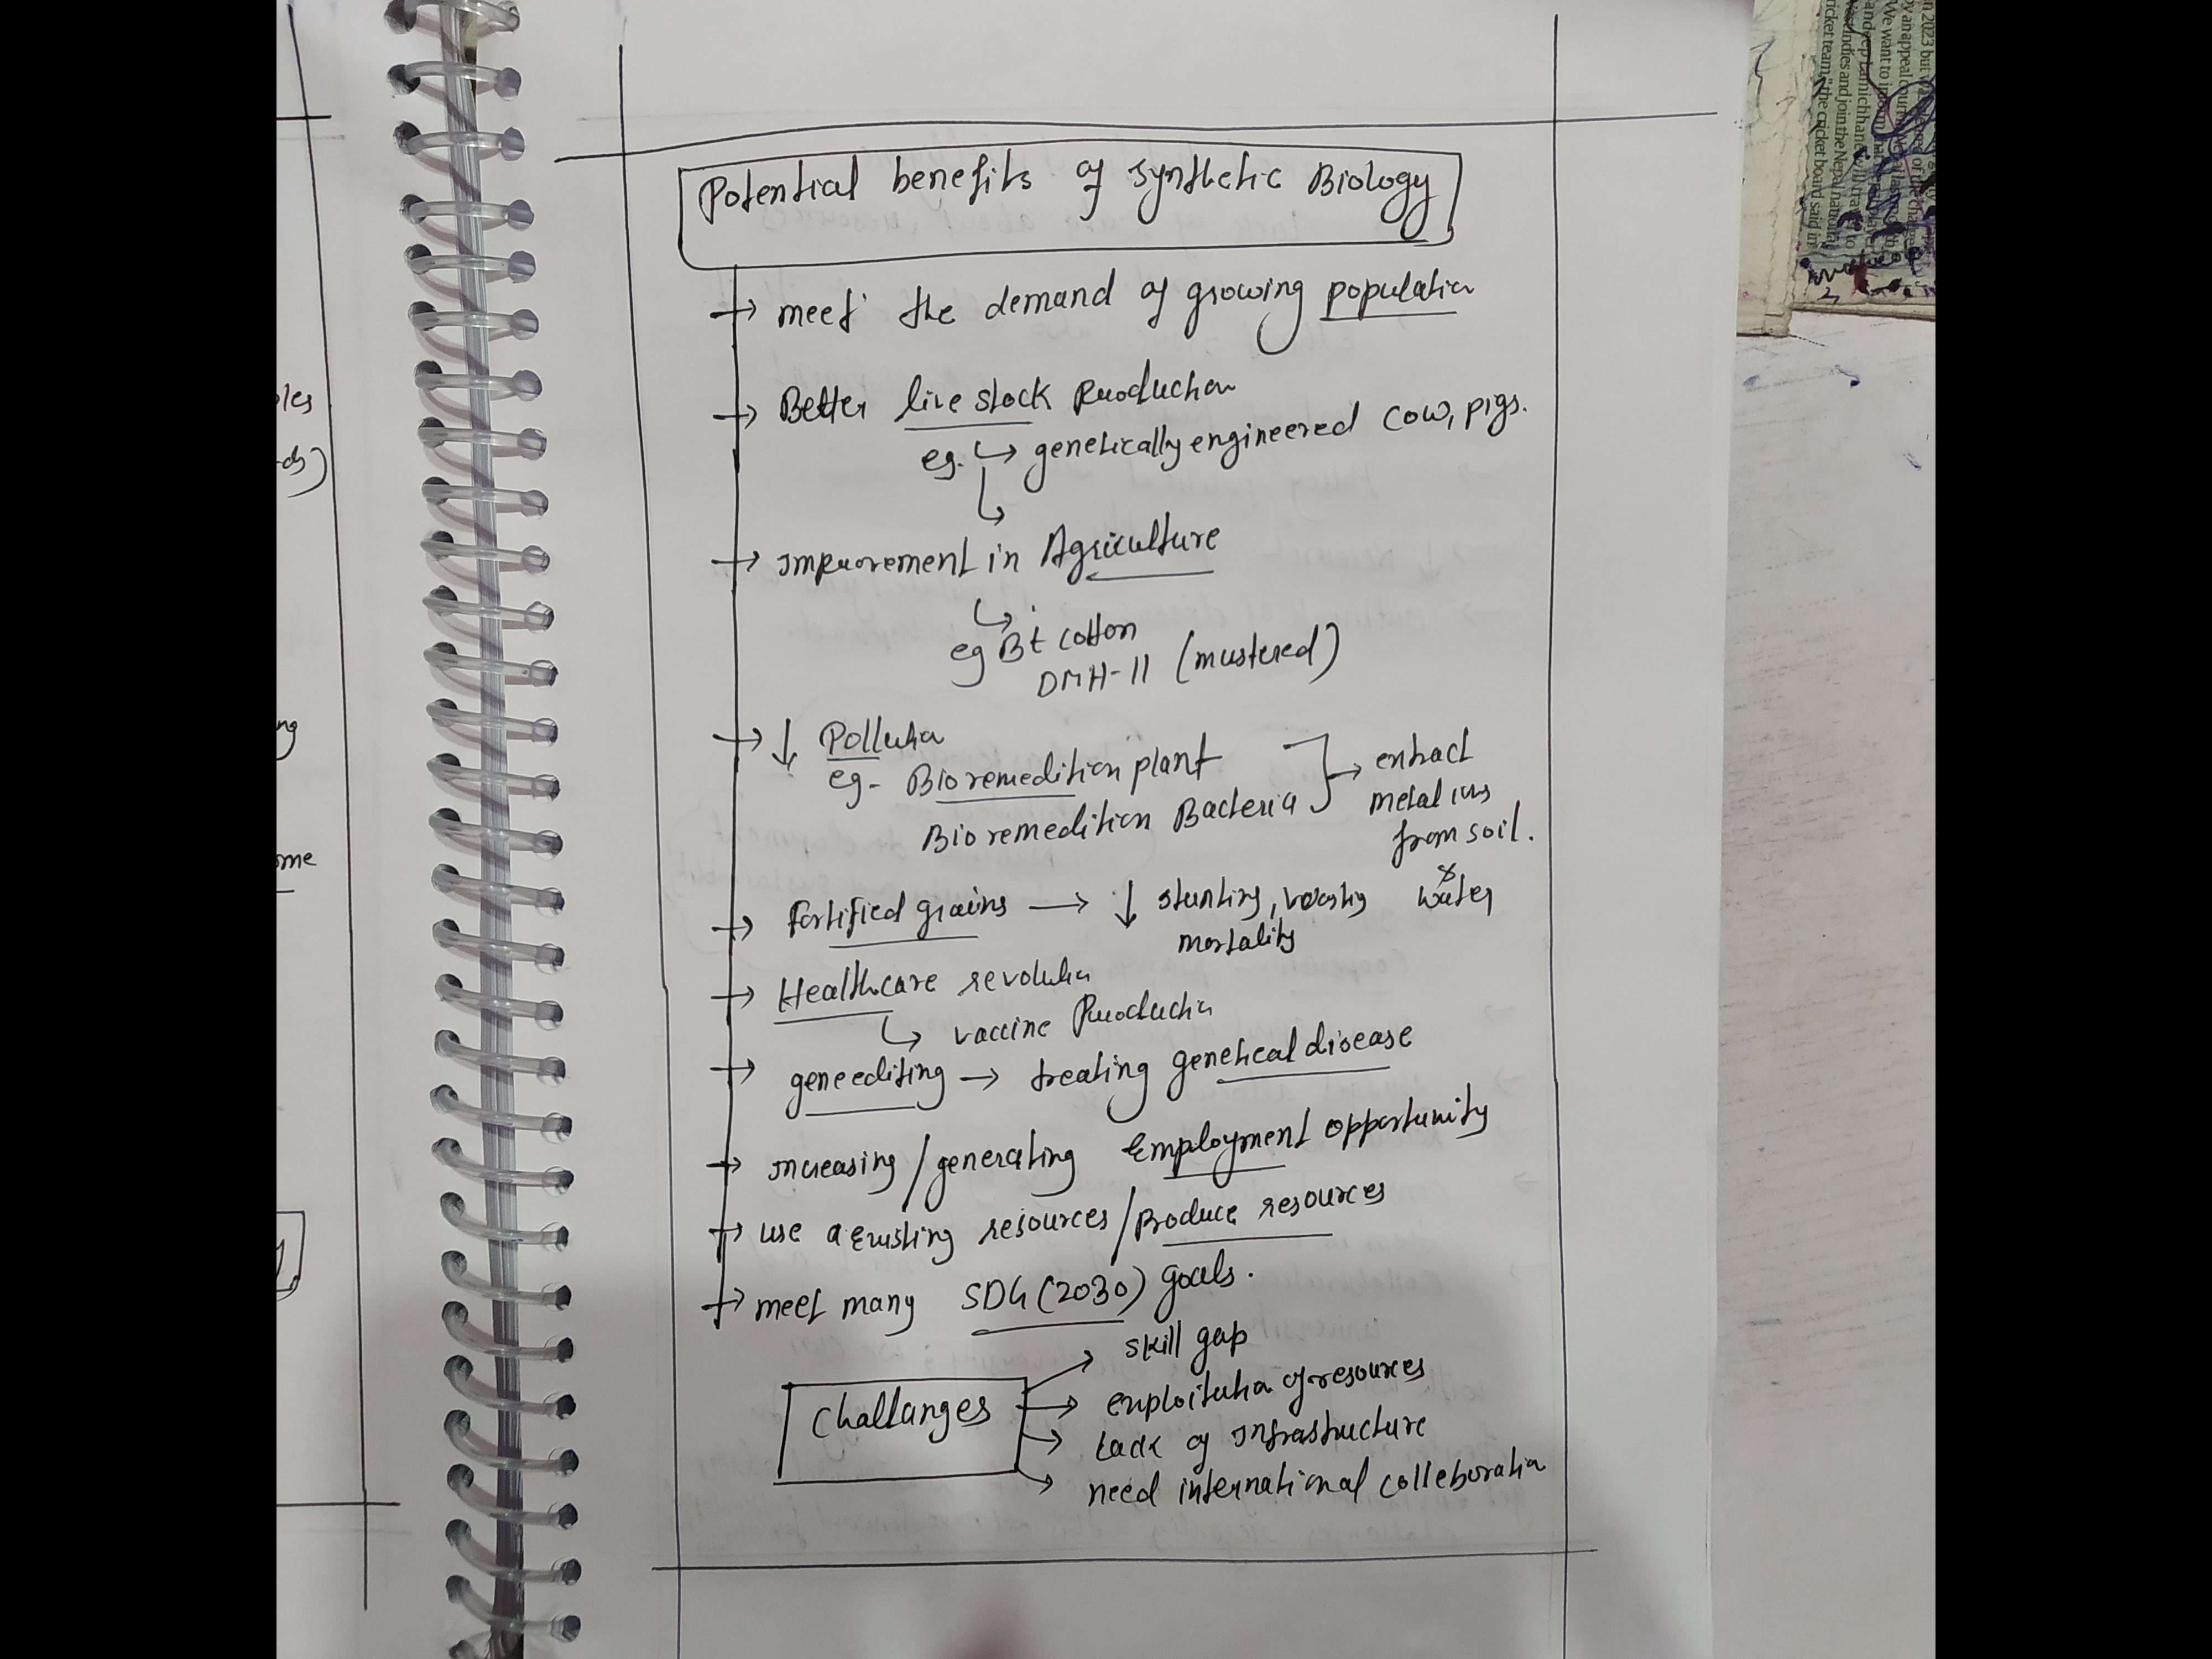 Potential benefits of synthetic Biology
→ meet the demand of growing population
→ Better live stock Production
eg. ↳ genetically engineered cow, pigs.
→ Improvement in Agriculture
↳
eg Bt cotton
DMH-11 (mustered)
→ ↓ Pollution
eg- Bioremedition plant
Bioremedition Bacteria → extract
metal ions
from soil.
&
water
→ fortified grains → ↓ stunting, wasting
mortality
→ Healthcare revolution
↳ vaccine Production
→ geneediting → treating genetical disease
→ Increasing/generating Employment opportunity
→ use existing resources/Produce resources
→ meet many SDG (2030) goals.
Challanges
→ skill gap
→ exploitation of resources
→ Lack of Infrastructure
→ need international colleboration
ples
ds)
ng
ome
n 2023 but
by an appeal court
We want to
and
West Indies and join the Nepal national
cricket team," the cricket board said in